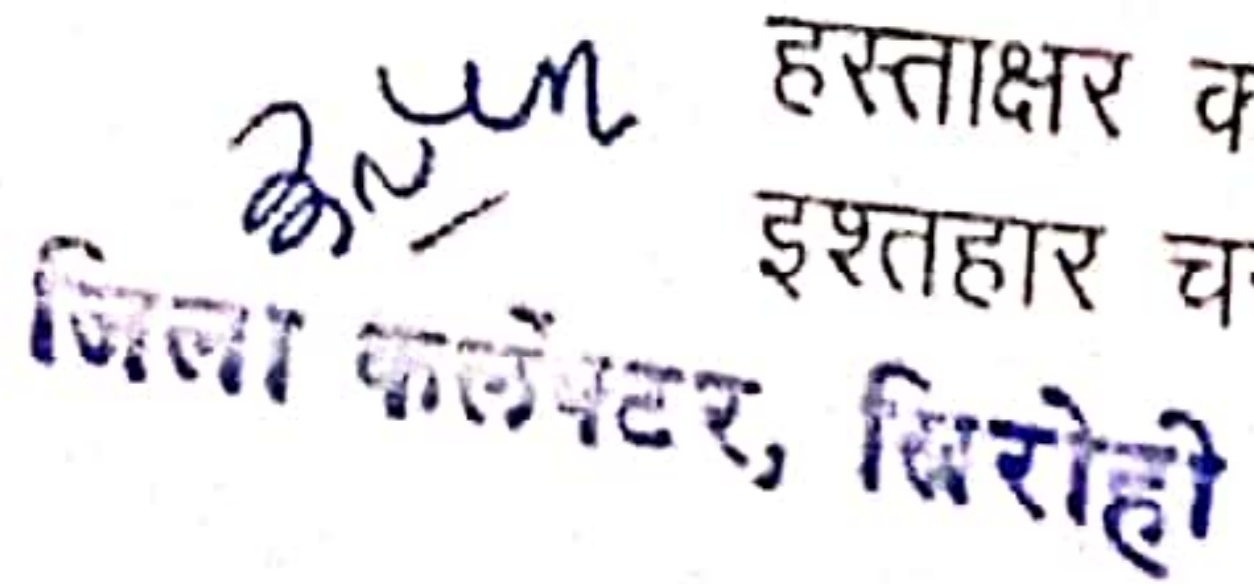 हस्ताक्षर
इश्तहार
जिला कलेक्टर, सिरोही